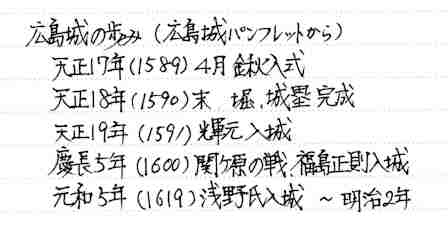 広島城の歩み (広島城パンフレットから)
天正17年(1589)4月 鍬入式
天正18年(1590)末 堀、城塁完成
天正19年(1591)輝元入城
慶長5年(1600)関ヶ原の戦、福島正則入城
元和5年(1619)浅野氏入城 ～明治2年